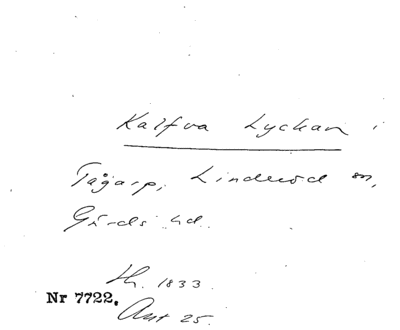 Kalfva Lyckan i
Tågarp, Linderöd sn,
Gärds hd.
Lh. 1833.
Nr 7722.
Akt 25.